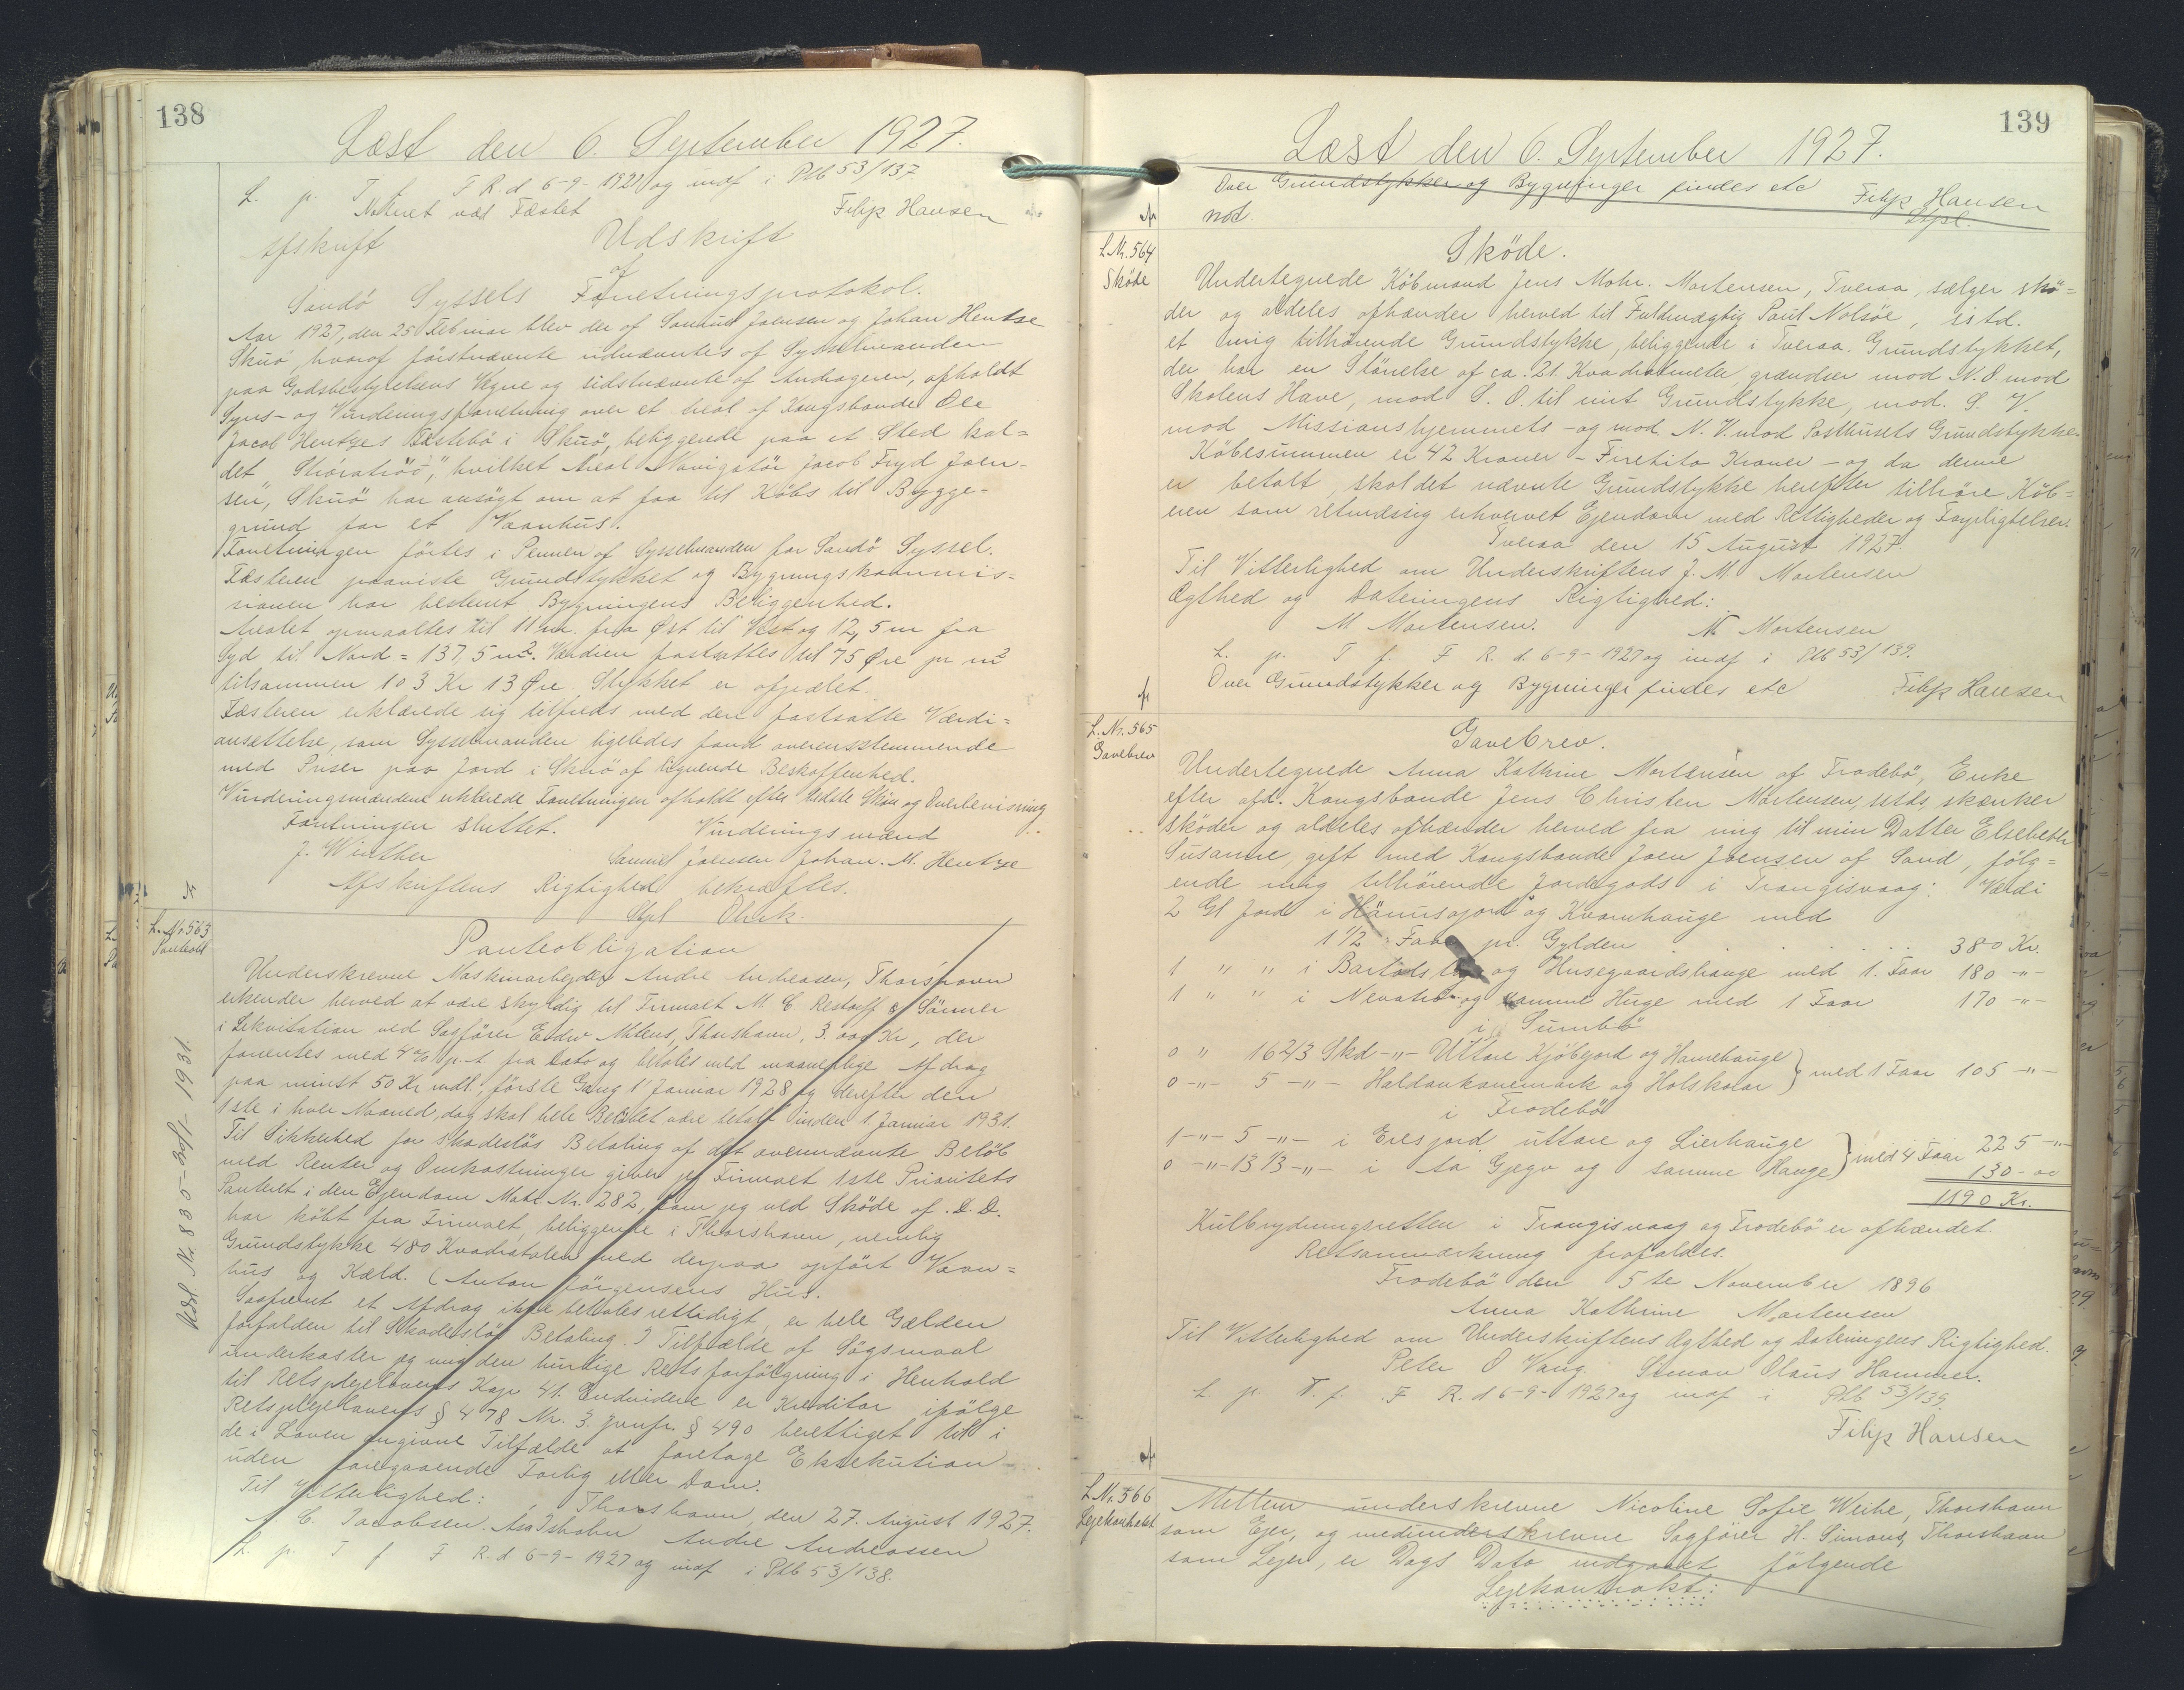 138
Læst den 6. September 1927.
L. p. T. f. F R. d 6-9-1927 og indf i Ptb 53/137
Noteret ved Fæstet
Filip Hansen
Afskrift
Udskrift
af
Sandö Syssels Forretningsprotokol.
Aar 1927, den 25 Februar blev der af Samuel Joensen og Johan Hentze
Skuö, hvoraf förstnævnte udnævntes af Sysselmanden
paa Godsbestyrelsens Vegne og sidstnævnte af Andrageren, afholdt
Syns- og Vurderingsforretning over et Areal af Kongsbonde Ole
Jacob Hentzes Fæstebö i Skuö, beliggende paa et Sted kal=
det hvilket Areal Navigatör Jacob Fryd Joen-
sen, Skuö har ansögt om at faa til Köbs til Bygge-
grund for et Vaanhus.
Forretningen förtes i Pennen af Sysselmanden for Sandö Syssel.
Fæsteren paaviste Grundstykket og Bygningskommis=
sionen har bestemt Bygningens Beliggenhed.
Arealet opmaaltes til 11 m. fra Øst til Vest og 12,5 m fra
Syd til Nord = 137,5 m². Værdien fastsattes til 75 Øre pr m²
tilsammen 103 Kr 13 Øre. Stykket er afpælet.
Fæsteren erklærede sig tilfreds med den fastsatte Værdi=
ansettelse, som Sysselmanden ligeledes fandt overensstemmende
med Priser paa Jord i Skuö af lignende Beskaffenhed.
Vurderingsmændene erklærede Forretningen afholdt efter bedste Skön og Overbevisning
Forretningen sluttet.
Vurderingsmænd
J. Winther
Samuel Joensen Johan. M. Hentze
Afskriftens Rigtighed bekræftes.
Stpl
L. Nr. 563
Panteobl
Panteobligation
Underskrevne Maskinarbejder Andre Andreasen, Thorshavn
erkender herved at være skyldig til Firmaet M. C. Restorff & Sönner
i Likvitation ved Sagförer Edw Mitens, Thorshavn, 3.000 Kr, der
forrentes med 4% p. A. fra Dato og betales med maanedlige Afdrag
paa minst 50 Kr mdl., förste Gang 1' Januar 1928 og derefter den
1ste i hver Maaned, dog skal hele Belöbet være betalt inden 1. Januar 1931.
Til Sikkerhed for skadeslös Betaling af det ovennævnte Belöb
med Renter og Omkostninger giver jeg Firmaet 1ste Prioritets
Panteret i den Ejendom Matr. Nr. 282, som jeg ved Sköde af .D.D.
har köbt fra Firmaet, beliggende i Thorshavn, nemlig
Grundstykke 480 Kvadratalen med derpaa opfört Vaan=
hus og Kæld. (Anton Jörgensens Hus.
Saafremt et Afdrag ikke betales rettidigt, er hele Gælden
forfalden til Skadeslös Betaling. I Tilfælde af Sögsmaal
underkaster jeg mig den hurtige Retsforfölgning i Henhold
til Retsplejelovens Kap 41. Endvidere er Kreditor ifölge
Retsplejelovens § 478 Nr. 3. jvnfr. § 490 berettiget til i
de i Loven angivne Tilfælde at foretage Eksekution
uden foregaaende Forlig eller Dom.
Til Vitterlighed:
Thorshavn, den 27. August 1927.
C. Jacobsen.
Andre Andreassen
L. p. T f F R. d 6-9-1927 og indf i Ptb 53/138.
139
Læst den 6. September 1927.
Over Grundstykker og Bygninger findes etc
Filip Hansen
not.
Stpl.
L. Nr. 564
Sköde
Sköde.
Undertegnede Köbmand Jens Mohr. Mortensen, Tveraa, sælger skö=
der og aldeles afhænder herved til Fuldmægtig Poul Nolsöe, istd.
et mig tilhörende Grundstykke, beliggende i Tveraa. Grundstykket,
der har en Störrelse af ca. 21 Kvadratmeter, grændser mod N.O. mod
Skolens Have, mod S. O. til mit Grundstykke, mod. S. V.
mod Missionshjemmets – og mod N. V. mod Posthusets Grundstykke.
Köbesummen er 42 Kroner – Firetito Kroner – og da denne
er betalt, skal det nævnte Grundstykke herefter tilhöre Köb=
eren som retmæssig erhvervet Ejendom med Rettigheder og Forpligtelser.
Tveraa den 15 August 1927
Til Vitterlighed om Underskriftens J. M. Mortensen
Ægthed og Dateringens Rigtighed:
M Mortensen.
N Mortensen
L. p. T f. F R. d. 6-9-1927 og indf i Ptb 53/139.
Over Grundstykker og Bygninger findes etc
Filip Hansen
L. Nr. 565
Gavebrev
Gavebrev.
Undertegnede Anna Kathrine Mortensen af Frodebö, Enke
efter afd. Kongsbonde Jens Christen Mortensen, istds, skænker
sköder og aldeles afhænder herved fra mig til min Datter Elsebeth
Susanne, gift med Kongsbonde Joen Joensen af Sand, fölg=
ende mig tilhörende Jordegods i Trangisvaag:
Værdi
2 Gl Jord i og Kvamhauge med
1 1/2 Faar pr. Gylden . . . . . . 380 Kr.
1 " " i og Husegaardshauge med 1. Faar 180 -"-
1 " " i og samme Huge med 1 Faar 170 -"-
i Sumbö
0 " 16 2/3 Skd -"- Uttare Kjöbejord og Hamrehauge
0 -"- 5 -"- Haldankanemark og Holskorar } med 1 Faar 105 -"-
i Frodebö
1 -"- 5 -"- i Eresjord uttare og Lierhauge
0 -"- 13 1/3 -"- i Aa Gjegv og samme Hauge } med 4 Faar 225 -"-
130 - "
1190 Kr.
Kulbrydningsretten i Trangisvaag og Frodebö er afhændet.
Retsanmærkning frafaldes.
Frodebö den 5te November 1896
Anna Kathrine Mortensen
Til Vitterlighed om Underskriftens Ægthed og Dateringens Rigtighed.
Peter O Vang. Simon Olaus Hammer.
L. p. T. f. F R. d 6-9-1927 og indf i Ptb 53/139.
Filip Hansen
L. Nr. 566
Lejekontrakt
Mellem underskrevne Nicoline Sofie Weihe, Thorshavn
som Ejer, og medunderskrevne Sagförer H. Simons, Thorshavn
som Lejer, er Dags Dato indgaaet fölgende
Lejekontrakt: